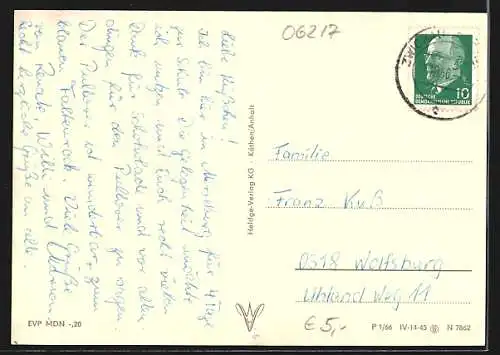 06217
Liebe Küßchen!
Ich bin hier in für 4 Tage
zur Schule. Die Gelegenheit möchte
ich nutzen und Euch recht vielen
Dank für Schokolade und vor allen
Dingen für den Pullover zu sagen.
Der Pullover ist wunderbar, zum
blauen Faltenrock. Viele Grüße
von Renate, Willi und
Recht herzliche Grüße an alle.
EVP MDN -,20
Heldge-Verlag KG · Köthen/Anhalt
DEUTSCHE
DEMOKRATISCHE REPUBLIK
10
Familie
Franz Kuß
Wolfsburg
Uhland Weg 11
€ 5,-
P 1/66 IV-14-45 N 7862